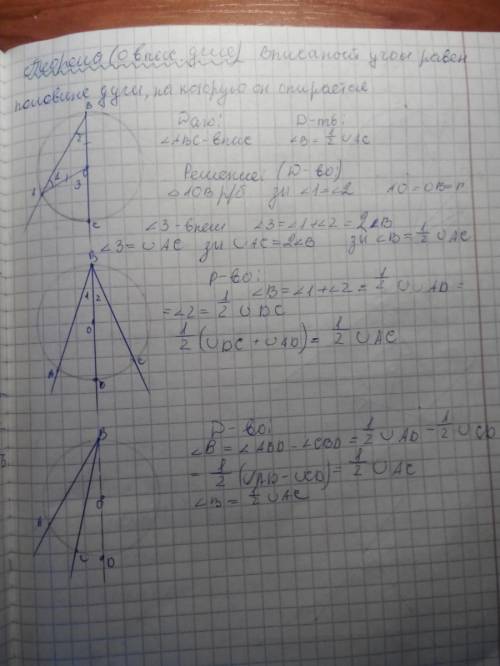 Теорема (о впис угле) Вписаный угол равен
половине дуги, на которую он опирается
Дано: D-ть:
∠ABC-впис ∠B = 1/2 ∪AC
Решение: (D-во)
△AOB р/б зн ∠1=∠2 AO=OB=r
∠3-внеш ∠3=∠1+∠2=2∠B
∠3=∪AC зн ∪AC=2∠B зн ∠B=1/2 ∪AC
D-во:
∠B=∠1+∠2=1/2 ∪AD =
=∠2=1/2 ∪DC
1/2 (∪DC+∪AD)=1/2 ∪AC
D-во:
∠B=∠ABD-∠CBD=1/2 ∪AD-1/2 ∪CD
=1/2 (∪AD-∪CD)=1/2 ∪AC
∠B=1/2 ∪AC
B
2
O
1
3
C
B
1 2
O
A
C
D
B
O
A
C
D